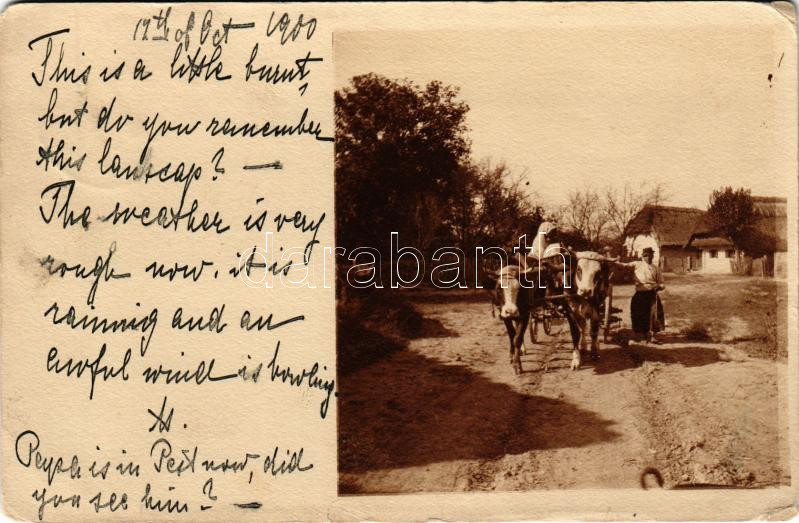 17th of Oct 1900
This is a little burnt,
but do you ramember
this lanscap? —
The weather is very
rough now. it is
raining and an
awful wind is howling.
Peysa is in Pest now, did
you see him? —
darabanth